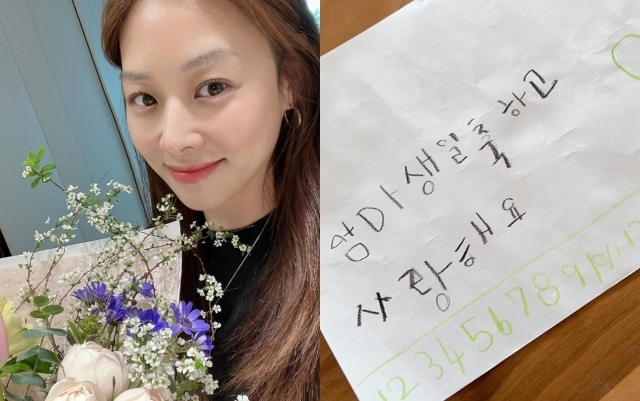 엄마생일축하고
사랑해요
123456789101112